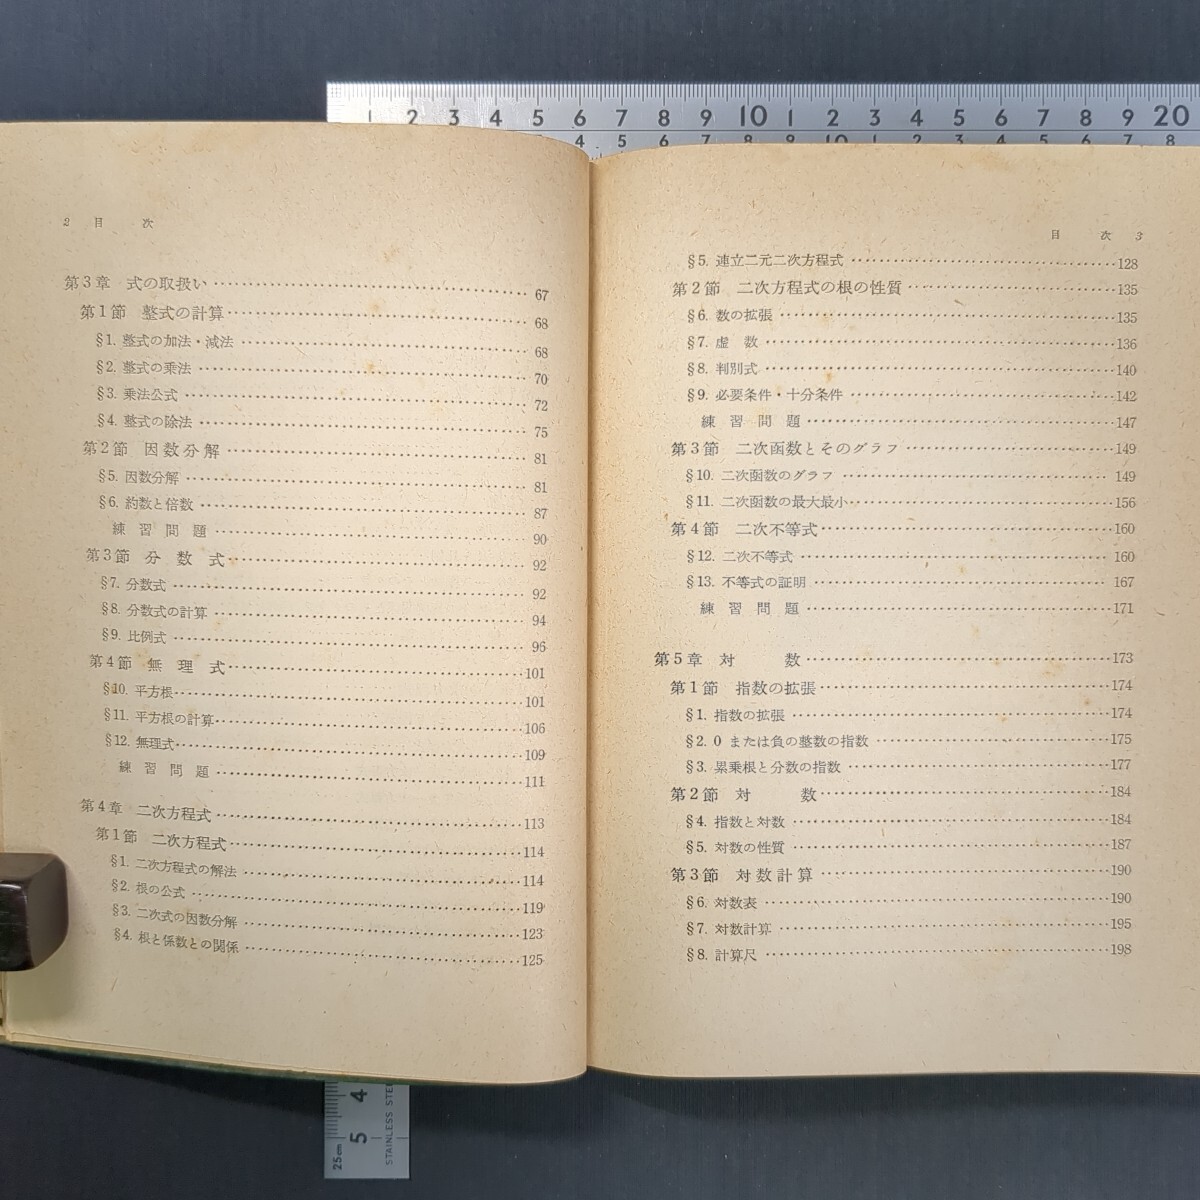 1 2 3 4 5 6 7 8 9 10 1 2 3 4 5 6 7 8 9 20
4 5 6 7 8 9 10 1 2 3 4 5 6 7 8
2 目 次
第3章 式の取扱い 67
第1節 整式の計算 68
§1. 整式の加法・減法 68
§2. 整式の乗法 70
§3. 乗法公式 72
§4. 整式の除法 75
第2節 因数分解 81
§5. 因数分解 81
§6. 約数と倍数 87
練習問題 90
第3節 分数式 92
§7. 分数式 92
§8. 分数式の計算 94
§9. 比例式 96
第4節 無理式 101
§10. 平方根 101
§11. 平方根の計算 106
§12. 無理式 109
練習問題 111
第4章 二次方程式 113
第1節 二次方程式 114
§1. 二次方程式の解法 114
§2. 根の公式 119
§3. 二次式の因数分解 123
§4. 根と係数との関係 125
目 次 3
§5. 連立二元二次方程式 128
第2節 二次方程式の根の性質 135
§6. 数の拡張 135
§7. 虚数 136
§8. 判別式 140
§9. 必要条件・十分条件 142
練習問題 147
第3節 二次函数とそのグラフ 149
§10. 二次函数のグラフ 149
§11. 二次函数の最大最小 156
第4節 二次不等式 160
§12. 二次不等式 160
§13. 不等式の証明 167
練習問題 171
第5章 対数 173
第1節 指数の拡張 174
§1. 指数の拡張 174
§2. 0 または負の整数の指数 175
§3. 累乗根と分数の指数 177
第2節 対数 184
§4. 指数と対数 184
§5. 対数の性質 187
第3節 対数計算 190
§6. 対数表 190
§7. 対数計算 195
§8. 計算尺 198
4 5
25cm STAINLESS STE